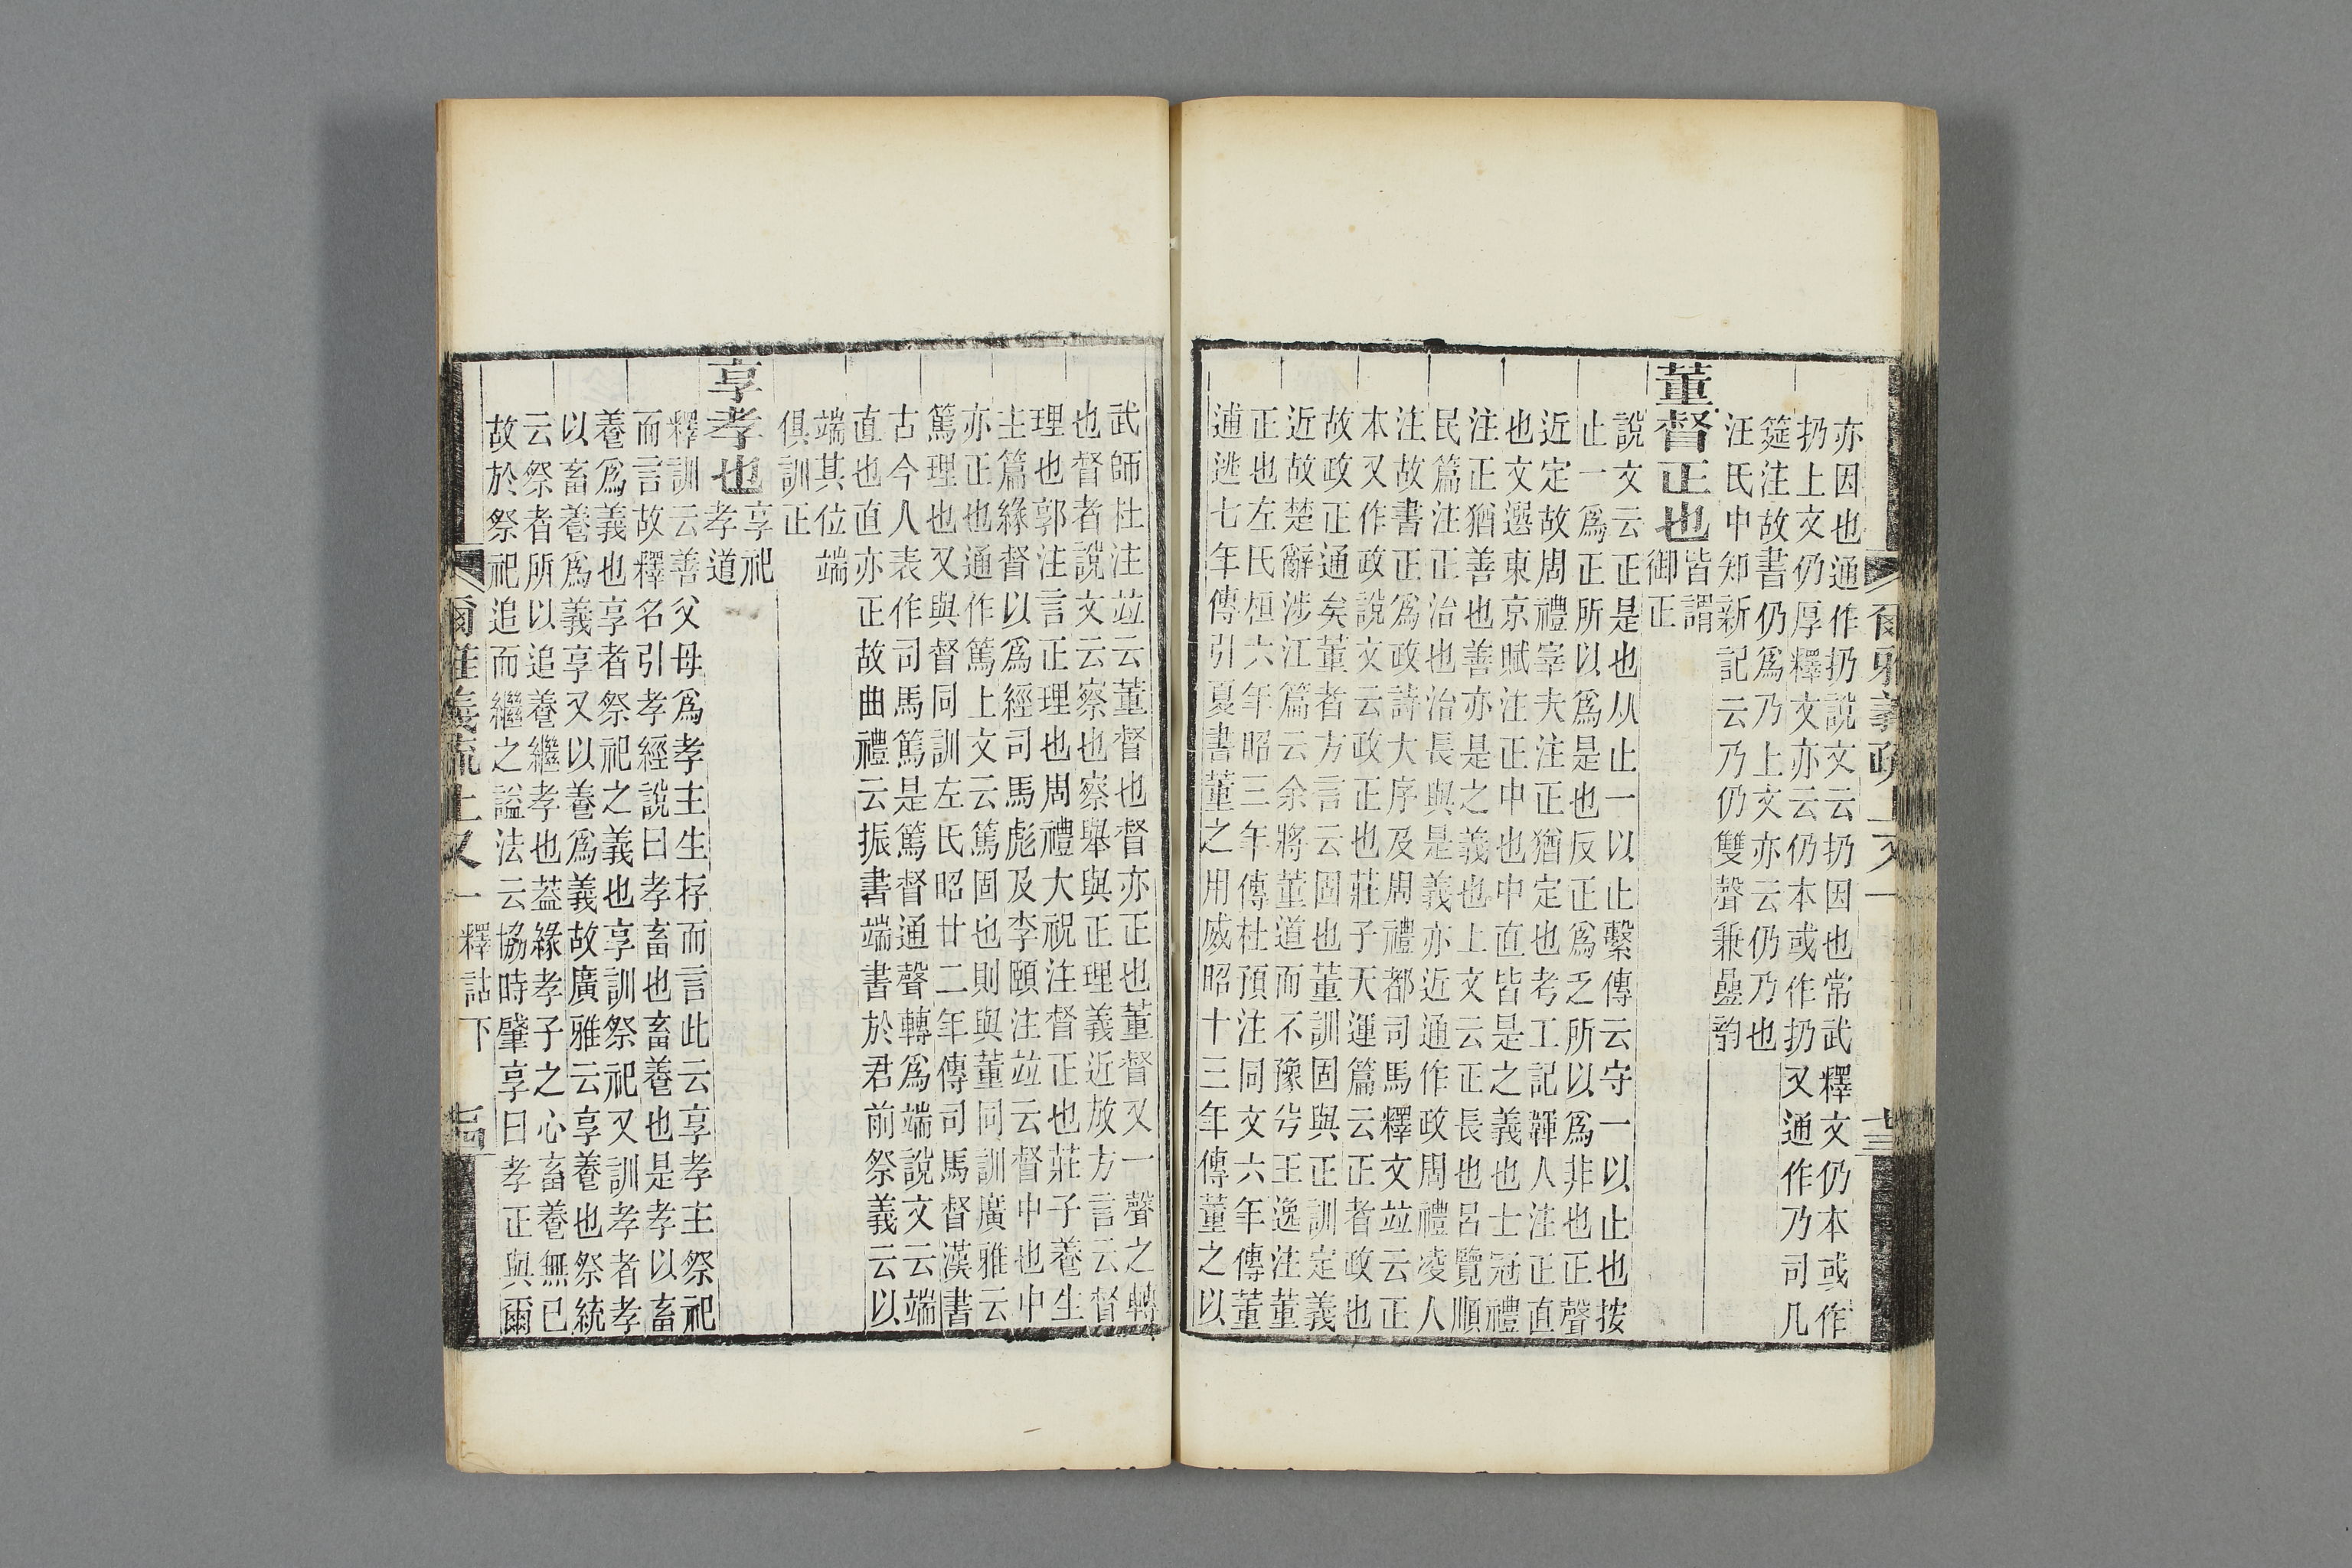 亦因也通作扔說文云扔因也常武釋文仍本或作
扔上文仍厚釋文亦云仍本或作扔又通作乃司几
筵注故書仍爲乃上文亦云仍乃也
汪氏中知新記云乃仍雙聲兼曡韵
董督正也
皆謂
御正
說文云正是也从止一以止繫傳云守一以止也按
止一爲正正所以爲是也反正爲乏所以爲非也正聲
近定故周禮宰夫注正猶定也考工記輝人注正直
也文選東京賦注正中也中直皆是之義也士冠禮
注正猶善也善亦是之義也上文云正長也呂覽順
民篇注正治也治長與是義亦近通作政周禮凌人
注故書正爲政詩大序及周禮都司馬釋文竝云正
本又作政說文云政正也莊子天運篇云正者政也
故政正通矣董者方言云固也董訓固與正訓定義
近故楚辭涉江篇云余將董道而不豫兮王逸注董
正也左氏桓六年昭三年傳杜預注同文六年傳董
逋逃七年傳引夏書董之用威昭十三年傳董之以
武師杜注竝云董督也督亦正也董督又一聲之轉
也督者說文云察也察舉與正理義近故方言云督
理也郭注言正理也周禮大祝注督正也莊子養生
主篇緣督以爲經司馬彪及李頤注竝云督中也中
亦正也通作篤上文云篤固也則與董同訓廣雅云
篤理也又與督同訓左氏昭廿二年傳司馬督漢書
古今人表作司馬篤是篤督通聲轉爲端說文云端
直也直亦正故曲禮云振書端書於君前祭義云以
端其位端
俱訓正
享孝也
享祀
孝道
釋訓云善父母爲孝主生存而言此云享孝主祭祀
而言故釋名引孝經說曰孝畜也畜養也是孝以畜
養爲義也享者祭祀之義也享訓祭祀又訓孝者孝
以畜養爲義享又以養爲義故廣雅云享養也祭統
云祭者所以追養繼孝也葢緣孝子之心畜養無已
故於祭祀追而繼之謚法云協時肇享曰孝正與爾
爾雅義疏上又一 釋詁下